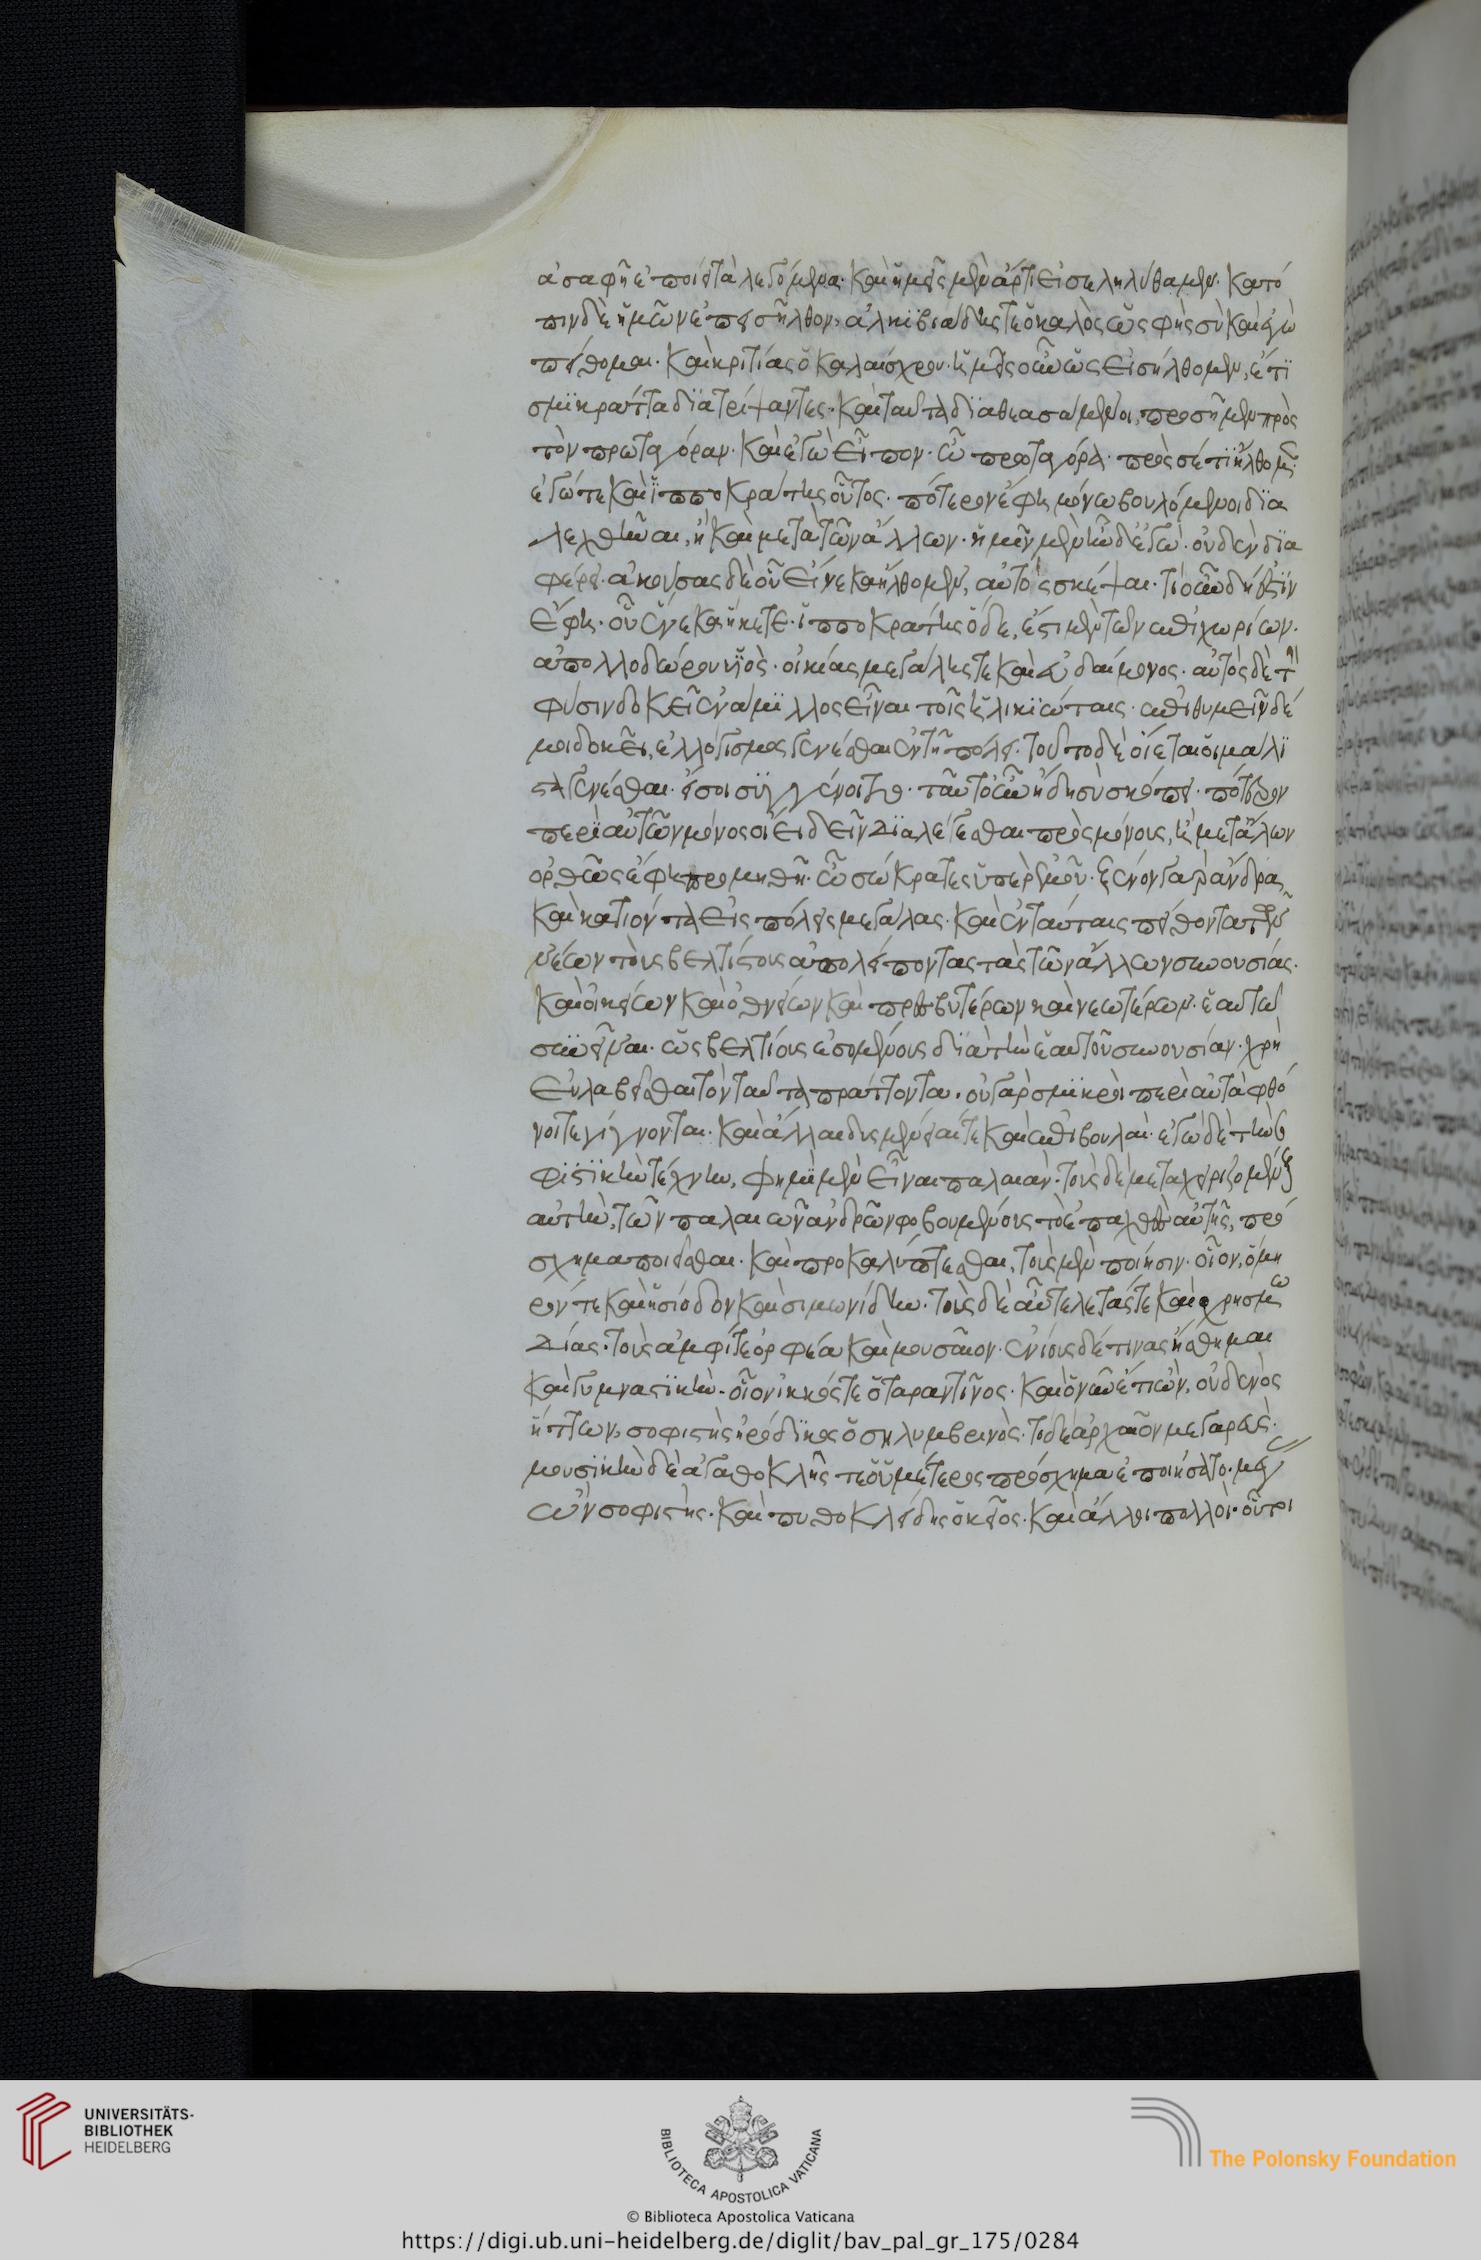 ἀσαφῆ ἐποίει τὰ λεγόμενα· καὶ ἡμεῖς μὲν ἄρτι εἰσεληλύθαμεν· κατό
πιν δὲ ἡμῶν ἐπεισῆλθον, ἀλκιβιάδης τε ὁ καλὸς ὡς φῂς σὺ καὶ ἐγὼ
πείθομαι· καὶ κριτίας ὁ καλαίσχρου· ἡμεῖς οὖν ὡς εἰσήλθομεν, ἔτι
σμίκρ' ἄττα διατρίψαντες· καὶ ταῦτα διαθεασάμενοι, προσῇμεν πρὸς
τὸν πρωταγόραν· καὶ ἐγὼ εἶπον· ὦ πρωταγόρα· πρὸς σέ τι ἤλθομεν·
ἐγώ τε καὶ ἱπποκράτης οὗτος· πότερον ἔφη μόνῳ βουλόμενοι δια
λεχθῆναι, ἢ καὶ μετὰ τῶν ἄλλων· ἡμῖν μὲν ἦν δ' ἐγώ· οὐδὲν δια
φέρει· ἀκούσας δὲ οὗ εἵνεκα ἤλθομεν, αὐτὸς σκέψαι· τί οὖν δή ἐστιν
ἔφη· οὗ ἕνεκα ἥκετε· ἱπποκράτης ὅδε, ἔστι μὲν τῶν ἐπιχωρίων·
ἀπολλοδώρου υἱὸς· οἰκίας μεγάλης τε καὶ εὐδαίμονος· αὐτὸς δὲ τὴν
φύσιν δοκεῖ ἐνάμιλλος εἶναι τοῖς ἡλικιώταις· ἐπιθυμεῖν δέ
μοι δοκεῖ, ἐλλόγιμος γενέσθαι ἐν τῇ πόλει· τοῦτο δὲ οἴεται οἱ μάλι
στα γενέσθαι· εἰ σοι συγγένοιτο· ταῦτ' οὖν ἤδη σὺ σκόπει· πότερον
περὶ αὐτῶν μόνος οἴει δεῖν διαλέγεσθαι πρὸς μόνους, ἢ μετ' ἄλλων
ὀρθῶς ἔφη προμηθῇ· ὦ σώκρατες ὑπὲρ ἐμοῦ· ξένον γὰρ ἄνδρα
καὶ κατιόντα εἰς πόλεις μεγάλας· καὶ ἐν ταύταις πείθοντα τῶν
νέων τοὺς βελτίστους ἀπολείποντας τὰς τῶν ἄλλων συνουσίας·
καὶ οἰκείων καὶ ὀθνείων καὶ πρεσβυτέρων καὶ νεωτέρων· ἑαυτῷ
συνεῖναι· ὡς βελτίους ἐσομένους διὰ τὴν ἑαυτοῦ συνουσίαν· χρὴ
εὐλαβεῖσθαι τὸν ταῦτα πράττοντα· οὐ γὰρ σμικροὶ περὶ αὐτὰ φθό
νοι τε γίγνονται· καὶ ἄλλαι δυσμένειαί τε καὶ ἐπιβουλαί· ἐγὼ δὲ τὴν σο
φιστικὴν τέχνην, φημὶ μὲν εἶναι παλαιάν· τοὺς δὲ μεταχειριζομένους
αὐτὴν, τῶν παλαιῶν ἀνδρῶν φοβουμένους τὸ ἐπαχθὲς αὐτῆς, πρό
σχημα ποιεῖσθαι· καὶ προκαλύπτεσθαι, τοὺς μὲν ποίησιν· οἷον, ὅμη
ρόν τε καὶ ἡσίοδον καὶ σιμωνίδην· τοὺς δὲ αὖ τελετάς τε καὶ χρησμῳ
δίας· τοὺς ἀμφί τε ὀρφέα καὶ μουσαῖον· ἐνίους δέ τινας ᾔσθημαι
καὶ γυμναστικὴν· οἷον ἴκκός τε ὁ ταραντῖνος· καὶ ὁ νῦν ἔτι ὢν, οὐδενὸς
ἥττων, σοφιστὴς ἡρόδικος ὁ σηλυμβρινὸς· τὸ δὲ ἀρχαῖον μεγαρεὺς·
μουσικὴν δὲ ἀγαθοκλῆς τε ὁ ὑμέτερος πρόσχημα ἐποιήσατο· μέγας
ὢν σοφιστής· καὶ πυθοκλείδης ὁ κεῖος· καὶ ἄλλοι πολλοί· οὗτοι
UNIVERSITÄTS-
BIBLIOTHEK
HEIDELBERG
BIBLIOTECA APOSTOLICA VATICANA
The Polonsky Foundation
© Biblioteca Apostolica Vaticana
https://digi.ub.uni-heidelberg.de/diglit/bav_pal_gr_175/0284